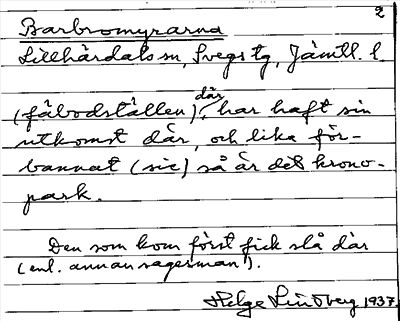 2
Barbromyrarna
Lillhärdals sn, Svegs tg, Jämtl. l.
där
(fäbodställen), har haft sin
utkomst där, och lika för-
bannat (sic) så är det krono-
park.
Den som kom först fick slå där
(enl. annan sagesman).
Helge Lindberg 1937